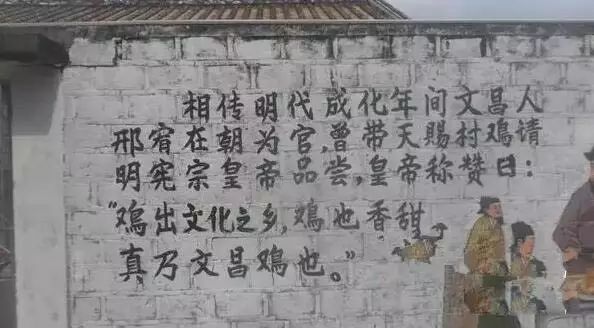 相传明代成化年间文昌人
邢宥在朝为官,曾带天赐村鸡请
明宪宗皇帝品尝,皇帝称赞曰:
"鸡出文化之乡,鸡也香甜,
真乃文昌鸡也。"